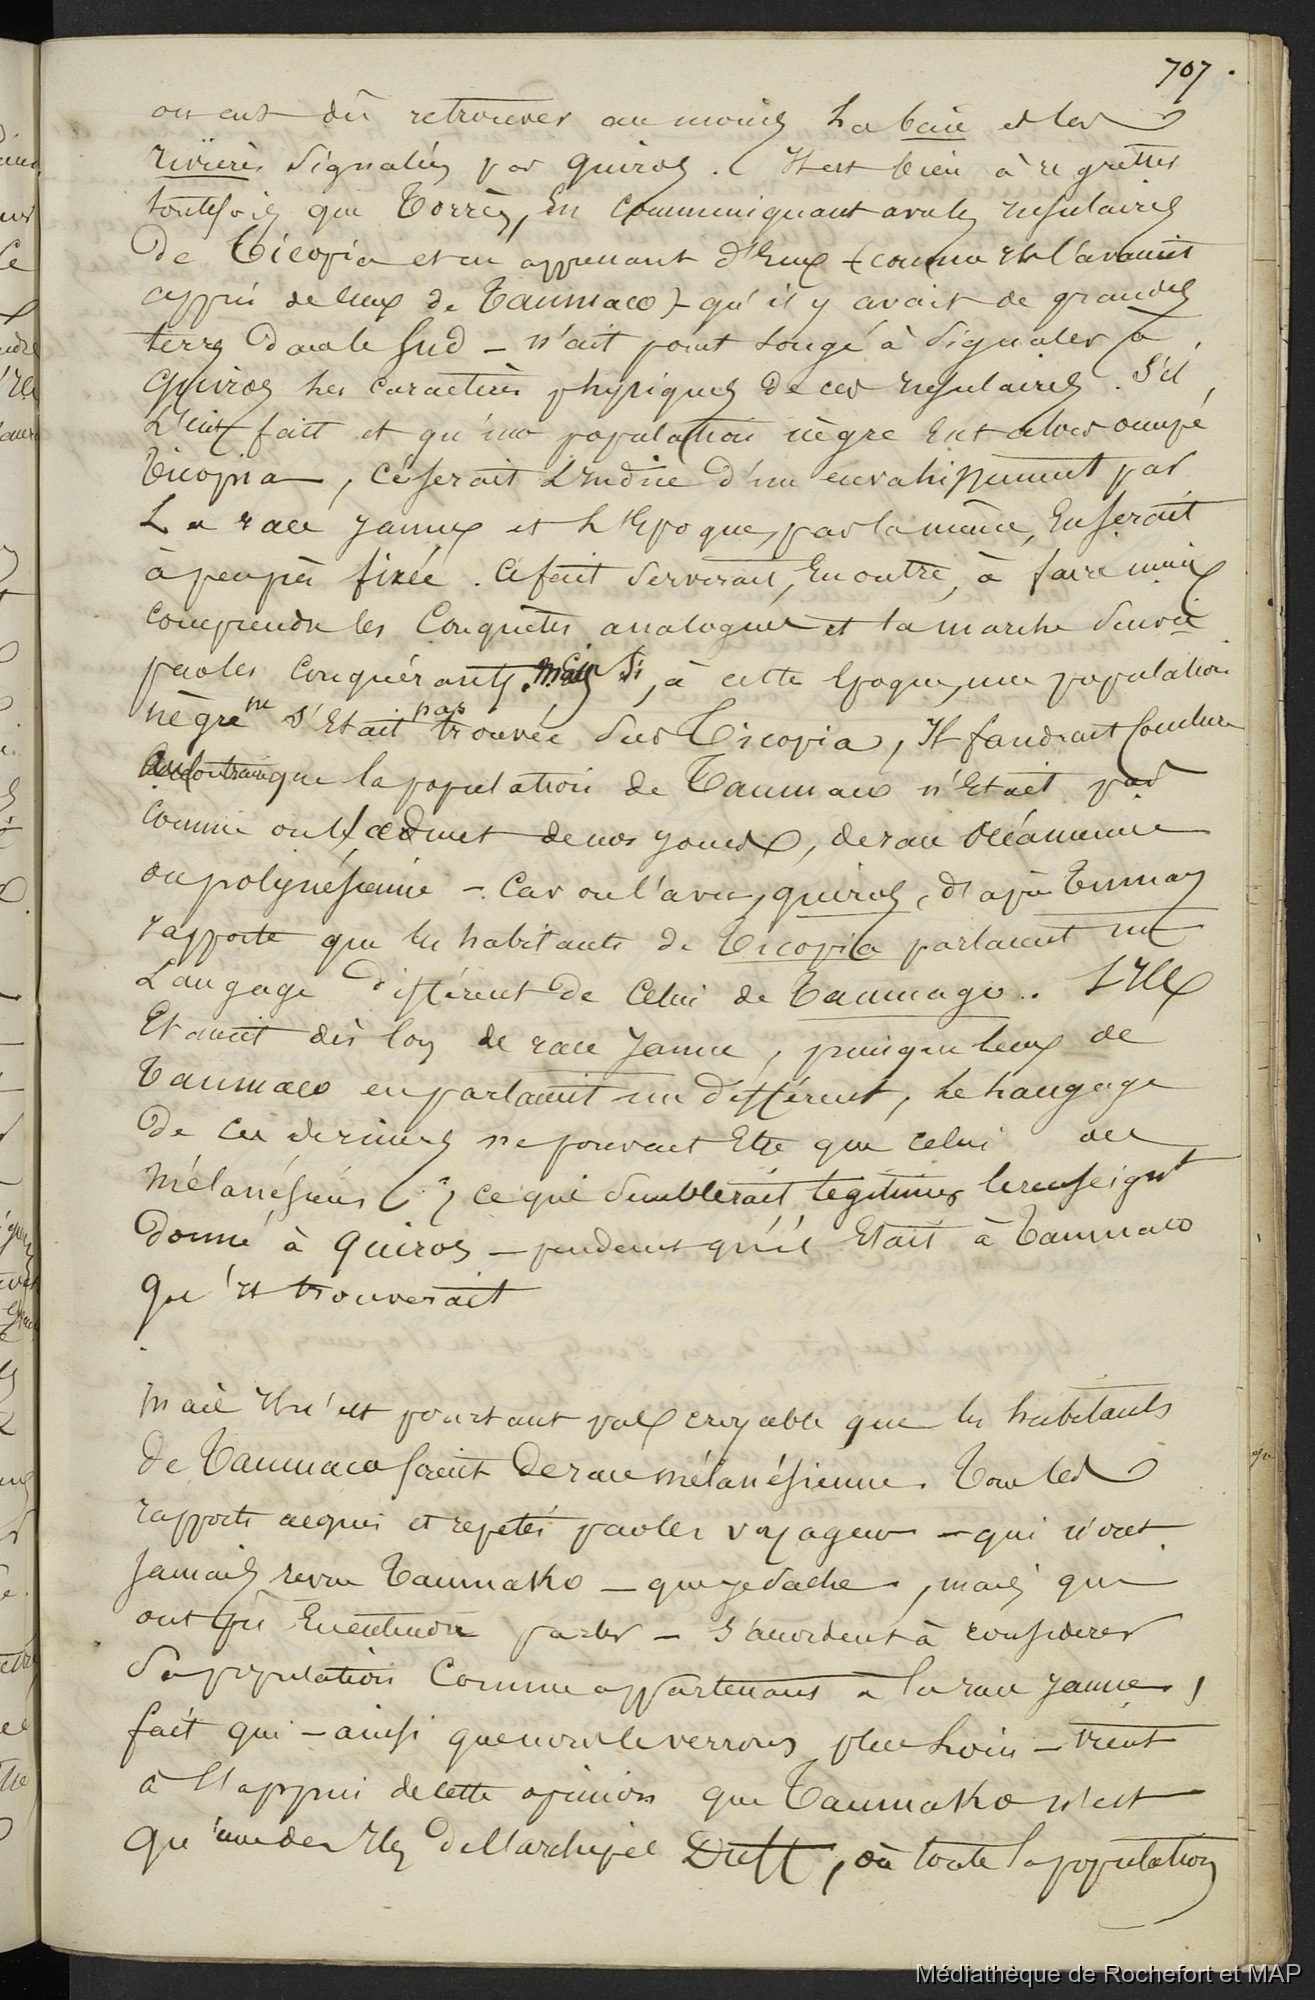 707.
on eut dû retrouver au moins la baie et les
rivières signalés par Quiros. Il est bien à regretter
toutefois que Torrès, en communiquant avec les insulaires
de Ticopia et en apprenant d'eux (comme il l'avait
appris de ceux de Taumaco) - qu'il y avait de grandes
terres dans le Sud - n'ait point songé à signaler à
Quiros les caractères physiques de ces insulaires. S'il
l'eut fait et qu'une population nègre eut alors occupé
Ticopia, ce serait l'indice d'un envahissement par
la race jaune et l'Epoque, par la même, en serait
à peu près fixée. Ce fait servirait, en outre, à faire mieux
comprendre les conquêtes analogues et la marche suivie
par les conquérants. Mais si, à cette époque, une population
nègre ne s'était pas trouvée sur Ticopia, il faudrait conclure
que la population de Taumaco n'était pas
comme on l'admet de nos jours, de race océanienne
ou polynésienne - Car on l'a vu, Quiros, d'après Tumay
rapporte que les habitants de Ticopia parlaient un
langage différent de celui de Taumago.. S'ils
étaient dès lors de race jaune, puisque ceux de
Taumaco en parlaient un différent, le langage
de ces derniers ne pouvait être que celui des
Mélanésiens (?) ce qui semblerait légitimer le renseignt
donné à Quiros - pendant qu'il était à Taumaco
qu'il trouverait
Mais il n'est pourtant pas croyable que les habitants
de Taumaco soient de race mélanésienne. Tous les
rapports acquis et répétés par les voyageurs - qui n'ont
jamais revu Taumako - que je sache, mais qui
ont pu en entendre parler - s'accordent à considérer
sa population comme appartenant à la race jaune,
fait qui - ainsi que nous le verrons plus loin - vient
à l'appui de cette opinion que Taumako n'est
qu'une des Iles de l'archipel Duff, où toute la population
Médiathèque de Rochefort et MAP